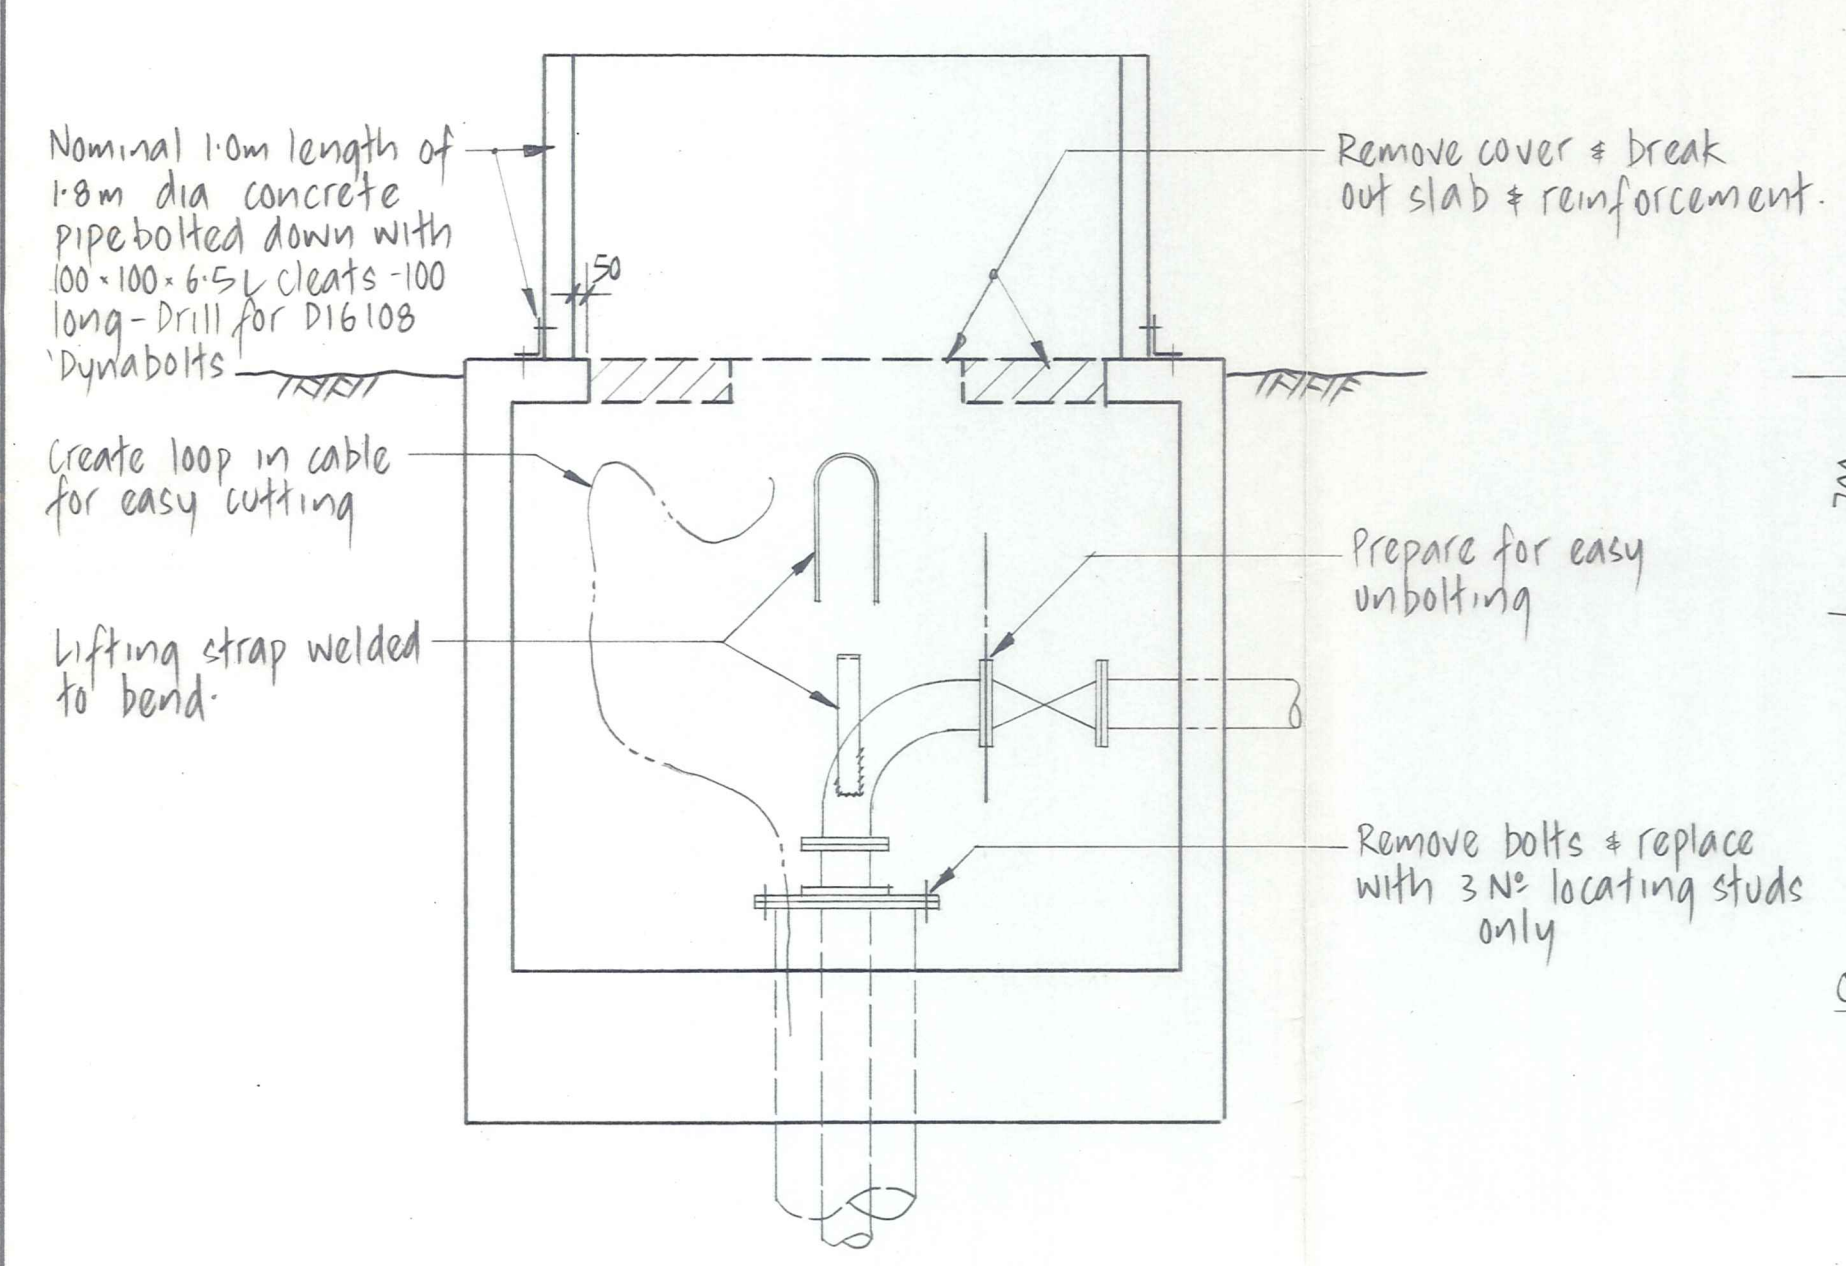 Nominal 1.0m length of
1.8m dia concrete
pipe bolted down with
100 × 100 × 6.5 L cleats - 100
long - Drill for D16108
'Dynabolts
50
Remove cover & break
out slab & reinforcement.
Create loop in cable
for easy cutting
Prepare for easy
unbolting
Lifting strap welded
to bend.
Remove bolts & replace
with 3 Nº locating studs
only